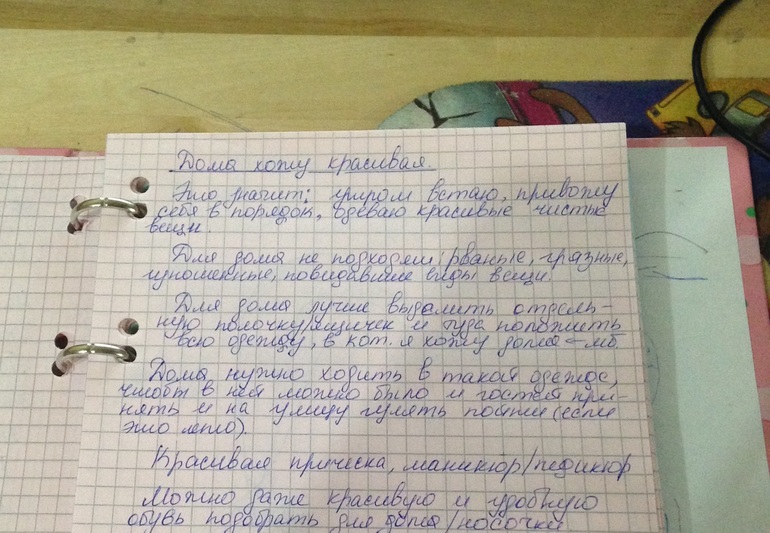 Дома хожу красивая.
Это значит: утром встаю, привожу
себя в порядок, одеваю красивые чистые
вещи.
Для дома не подходят рваные, грязные,
изношенные, повидавшие виды вещи.
Для дома лучше выделить отдель-
ную полочку/ящичек и туда положить
всю одежду, в кот. я хожу дома
Дома нужно ходить в такой одежде,
чтобы в ней можно было и гостей при-
нять и на улицу гулять пойти (если
это лето)
Красивая прическа, маникюр/педикюр
Можно даже красивую и удобную
обувь подобрать для дома/носочки